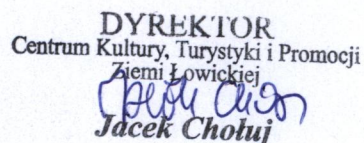 DYREKTOR
Centrum Kultury, Turystyki i Promocji
Ziemi Łowickiej
Jacek Chołuj